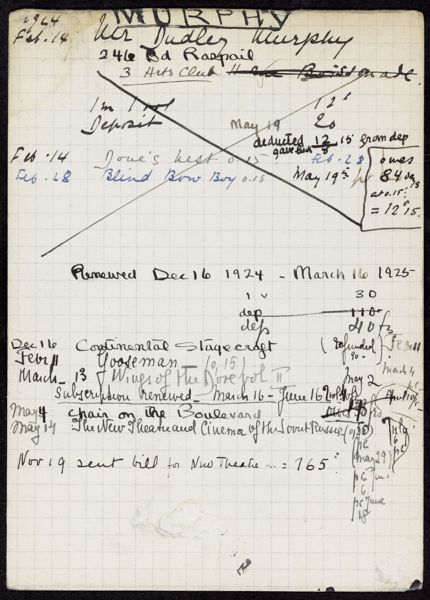 MURPHY
1924
Feb. 14 Mr Dudley Murphy
246 Bd Raspail
3 Arts Club
1m 1 vol 12 f
Deposit May 19 20
deducted 12.15 from dep
gave back 8
Feb. 14 Dove's nest 0.15 Feb. 28 owes
Feb. 28 Blind Bow Boy 0.15 May 19 84 days
at 0.15
= 12 f 15
Renewed Dec 16 1924 - March 16 1925
1 v 30
dep 110
deps 40 frs
Dec 16 Continental Stagecraft (refunded Feb 11
Febr 11 Gooseman (0,15) 90 - March 4
March - 13 Wings of the Dove vol II May 2
Subscription renewed - March 16 - June 16
May 4 Chair on the Boulevard
May 14 The New Theatre and Cinema of the Soviet Russia
pc
May 29)
pc
6
pc June
18
Nov 19 sent bill for New Theatre ... = 165 f